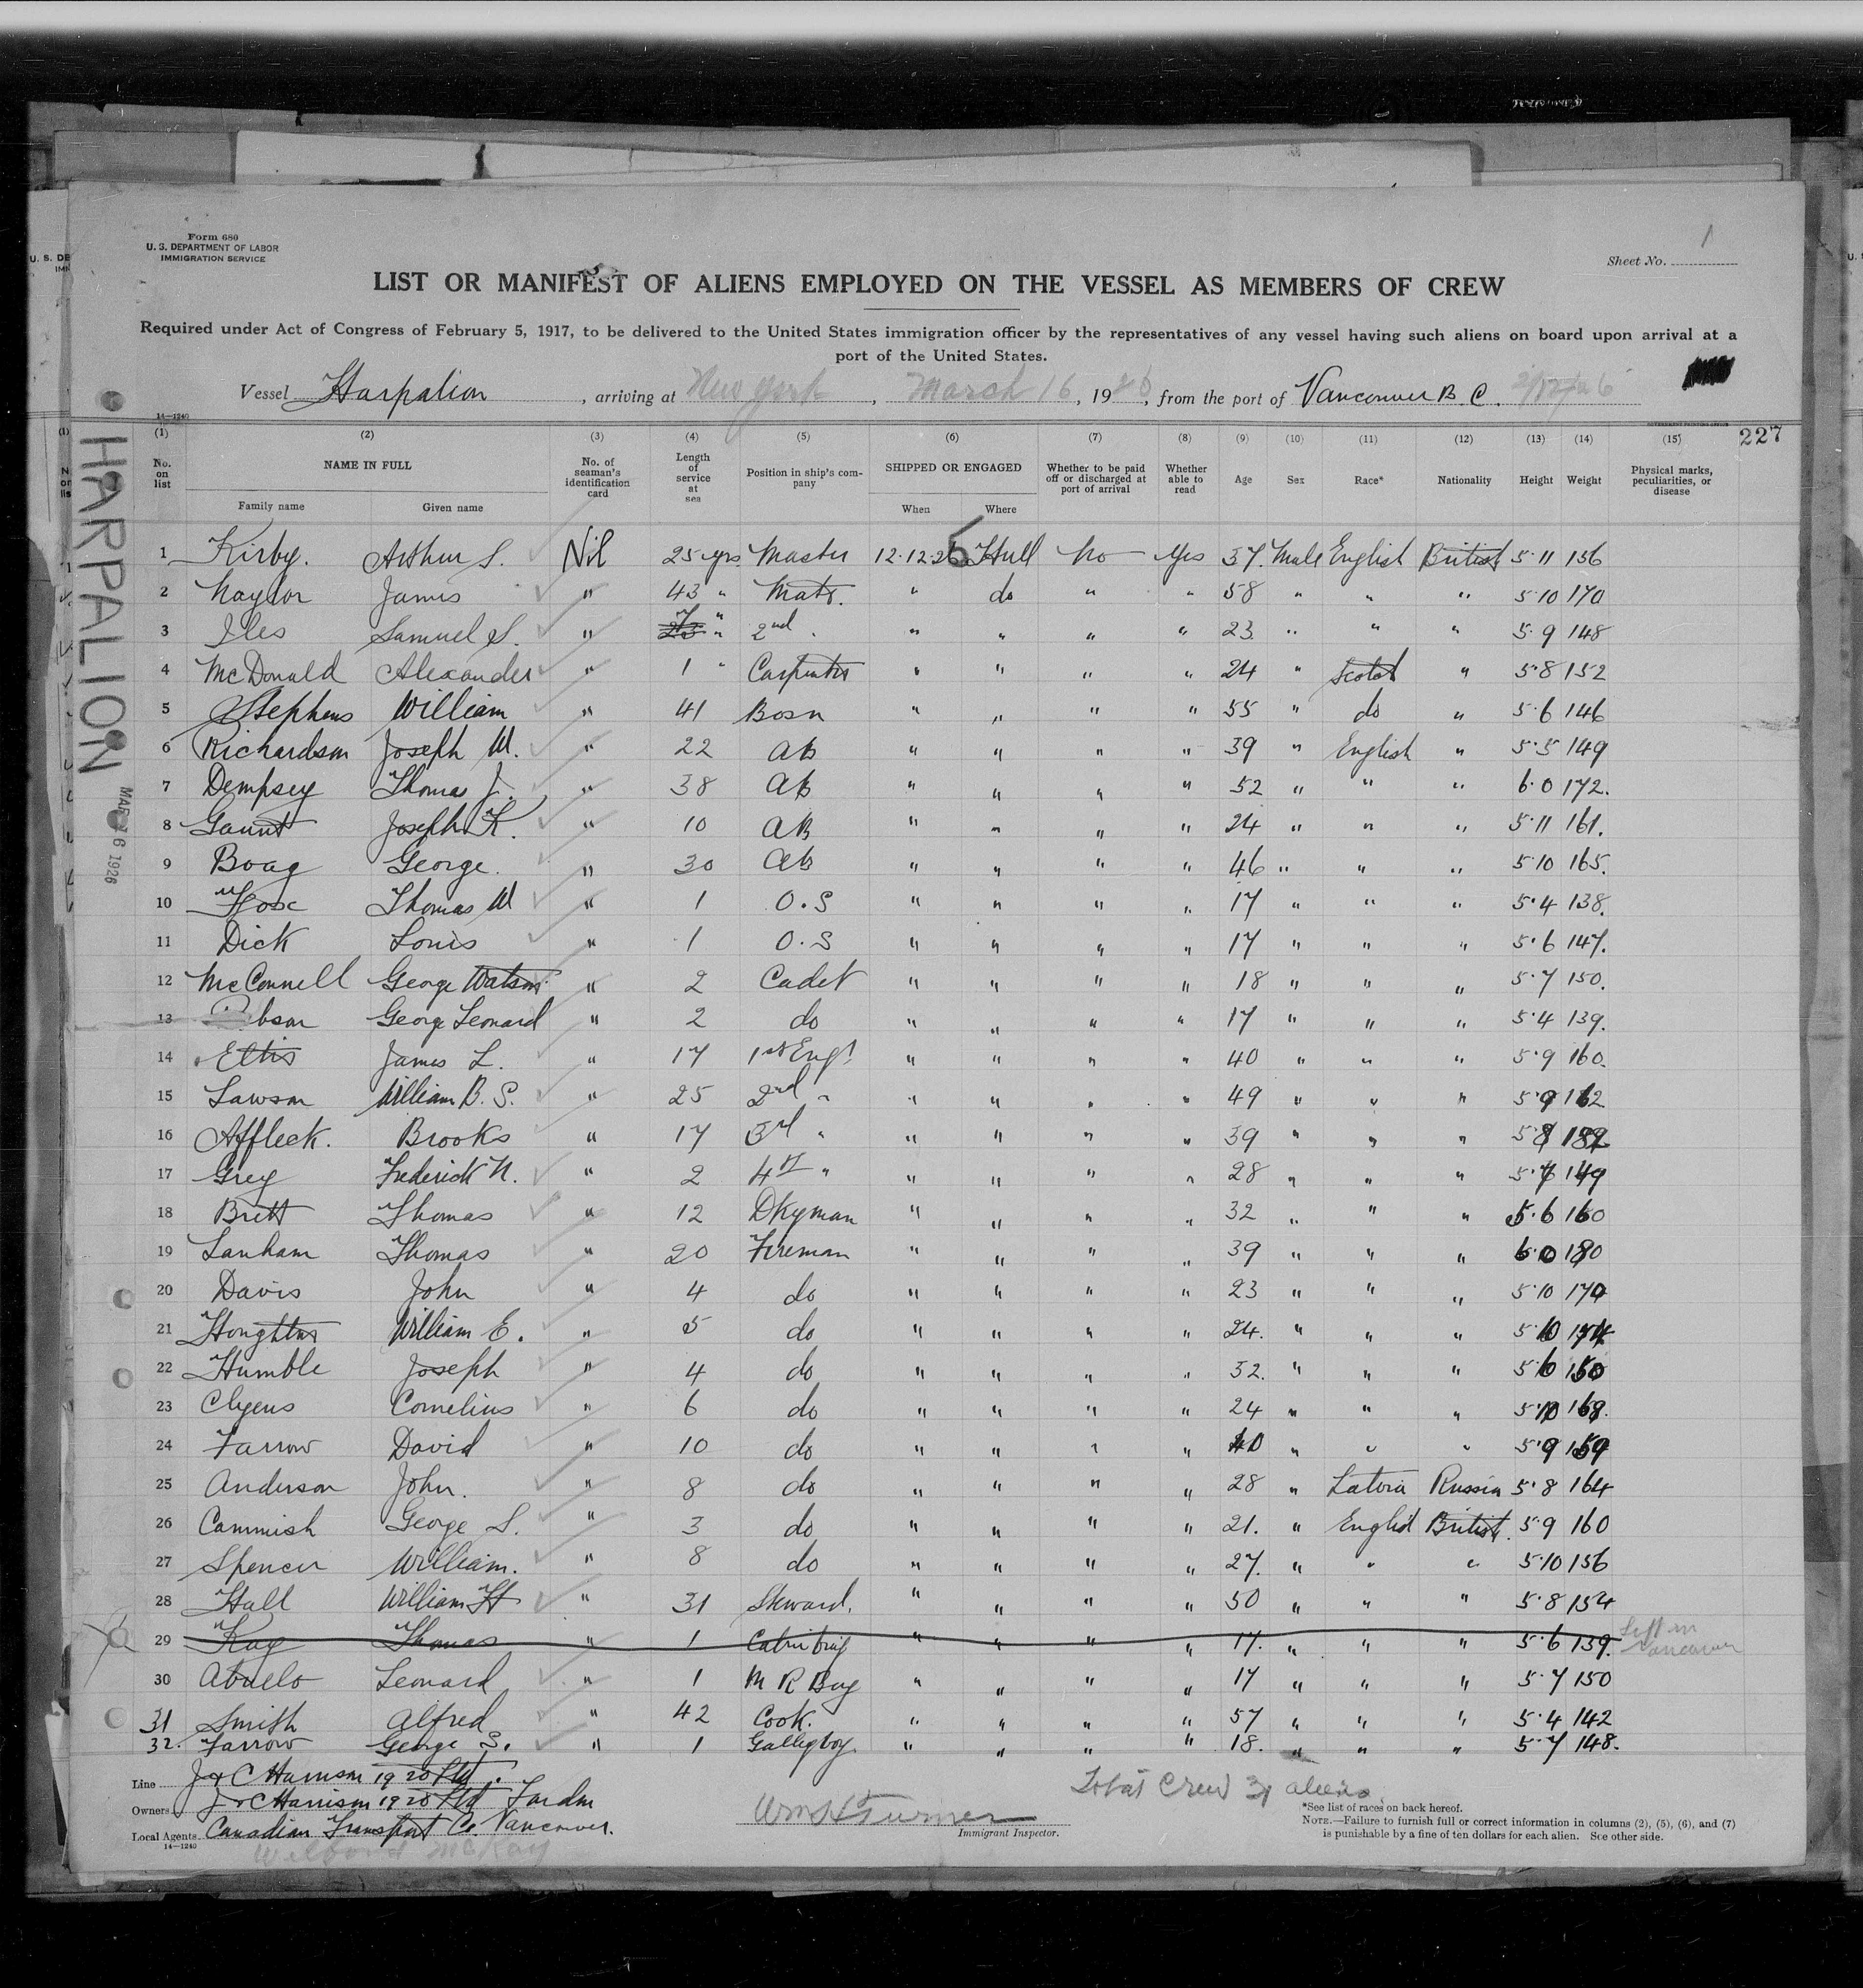 Form 680
U. S. DEPARTMENT OF LABOR
IMMIGRATION SERVICE
1
Sheet No.
LIST OR MANIFEST OF ALIENS EMPLOYED ON THE VESSEL AS MEMBERS OF CREW
Required under Act of Congress of February 5, 1917, to be delivered to the United States immigration officer by the representatives of any vessel having such aliens on board upon arrival at a
port of the United States.
Vessel Harpalion, arriving at New York, March 16, 1926, from the port of Vancouver B.C.
14—1240
GOVERNMENT PRINTING OFFICE
227
HARPALION
MAR 16 1926
(1) (2) (3) (4) (5) (6) (7) (8) (9) (10) (11) (12) (13) (14) (15)
No. on list NAME IN FULL Family name Given name No. of seaman's identification card Length of service at sea Position in ship's company SHIPPED OR ENGAGED When Where Whether to be paid off or discharged at port of arrival Whether able to read Age Sex Race* Nationality Height Weight Physical marks, peculiarities, or disease
1 Kirby. Arthur S. Nil 25 yrs Master 12.12.25 Hull No Yes 37. Male English British 5 11 156
2 Naylor James " 43 " Mate. " do " " 58 " " " 5 10 170
3 Iles Samuel S. " 7 " 2nd " " " " " 23 " " " 5. 9 148
4 McDonald Alexander " 1 " Carpenter " " " " 24 " Scotch " 5.8 152
5 Stephens William " 41 Bosn " " " " 55 " do " 5.6 146
6 Richardson Joseph W. " 22 AB " " " " 39 " English " 5.5 149
7 Dempsey Thomas J. " 38 AB " " " " 52 " " " 6.0 172.
8 Gaunt Joseph K. " 10 AB " " " " 24 " " " 5.11 161.
9 Boag George. " 30 AB " " " " 46 " " " 5 10 165.
10 Thomas W " 1 O.S " " " " 17 " " " 5.4 138.
11 Dick Louis " 1 O.S " " " " 17 " " " 5.6 147.
12 McConnell George Watson " 2 Cadet " " " " 18 " " " 5.7 150.
13 George Leonard " 2 do " " " " 17 " " " 5.4 139.
14 Ellis James L. " 17 1st Engr " " " " 40 " " " 5.9 160.
15 Lawson William B. S. " 25 2nd " " " " " 49 " " " 5 9 162
16 Affleck. Brooks " 17 3rd " " " " " 39 " " " 5 8
17 Grey Frederick N. " 2 4th " " " " " 28 " " " 5.7 149
18 Brett Thomas " 12 Dkyman " " " " 32 " " " 5.6 160
19 Lanham Thomas " 20 Fireman " " " " 39 " " " 6.0 180
20 Davis John " 4 do " " " " 23 " " " 5.10 174
21 Houghton William E. " 5 do " " " " 24. " " " 5.10 154
22 Humble Joseph " 4 do " " " " 32. " " " 5.6 150
23 Clyens Cornelius " 6 do " " " " 24 " " " 5.10 168.
24 Farrow David " 10 do " " " " 40 " " " 5.9 159
25 Anderson John. " 8 do " " " " 28 " Latvia Russia 5.8 164
26 Cammish George S. " 3 do " " " " 21. " English British. 5.9 160
27 Spencer William. " 8 do " " " " 27. " " " 5.10 156
28 Hall William H " 31 Steward. " " " " 50 " " " 5.8 154
29 Kay Thomas " 1 Cabin boy " " " " 17. " " " 5.6 139. Left in Vancouver
30 Abuelo Leonard " 1 M R Boy " " " " 17 " " " 5.7 150
31 Smith Alfred " 42 Cook. " " " " 57 " " " 5.4 142
32. Farrow George S. " 1 Galley boy " " " " 18. " " " 5.7 148.
Line J & C Harrison 1920 Ltd.
Owners J & C Harrison 1920 Ltd London
Local Agents Canadian Transport Co. Vancouver.
14—1240
Total Crew 31 aliens
Wm H Turner
Immigrant Inspector.
*See list of races on back hereof.
NOTE.—Failure to furnish full or correct information in columns (2), (5), (6), and (7)
is punishable by a fine of ten dollars for each alien. See other side.